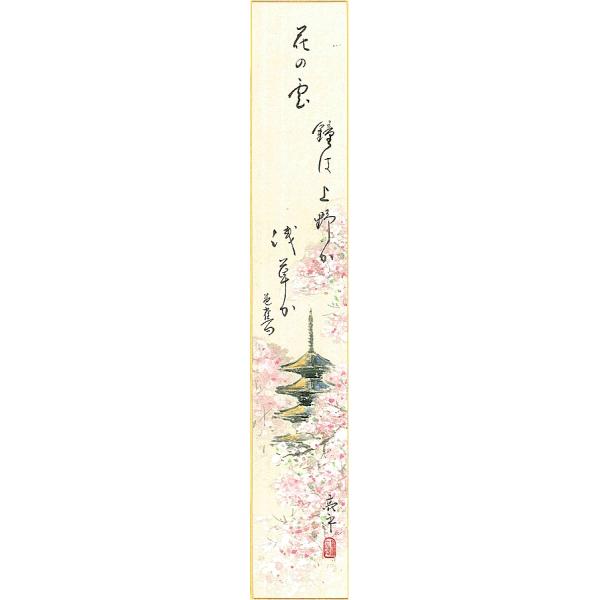 花の雲
鐘は上野か
浅草か
芭蕉